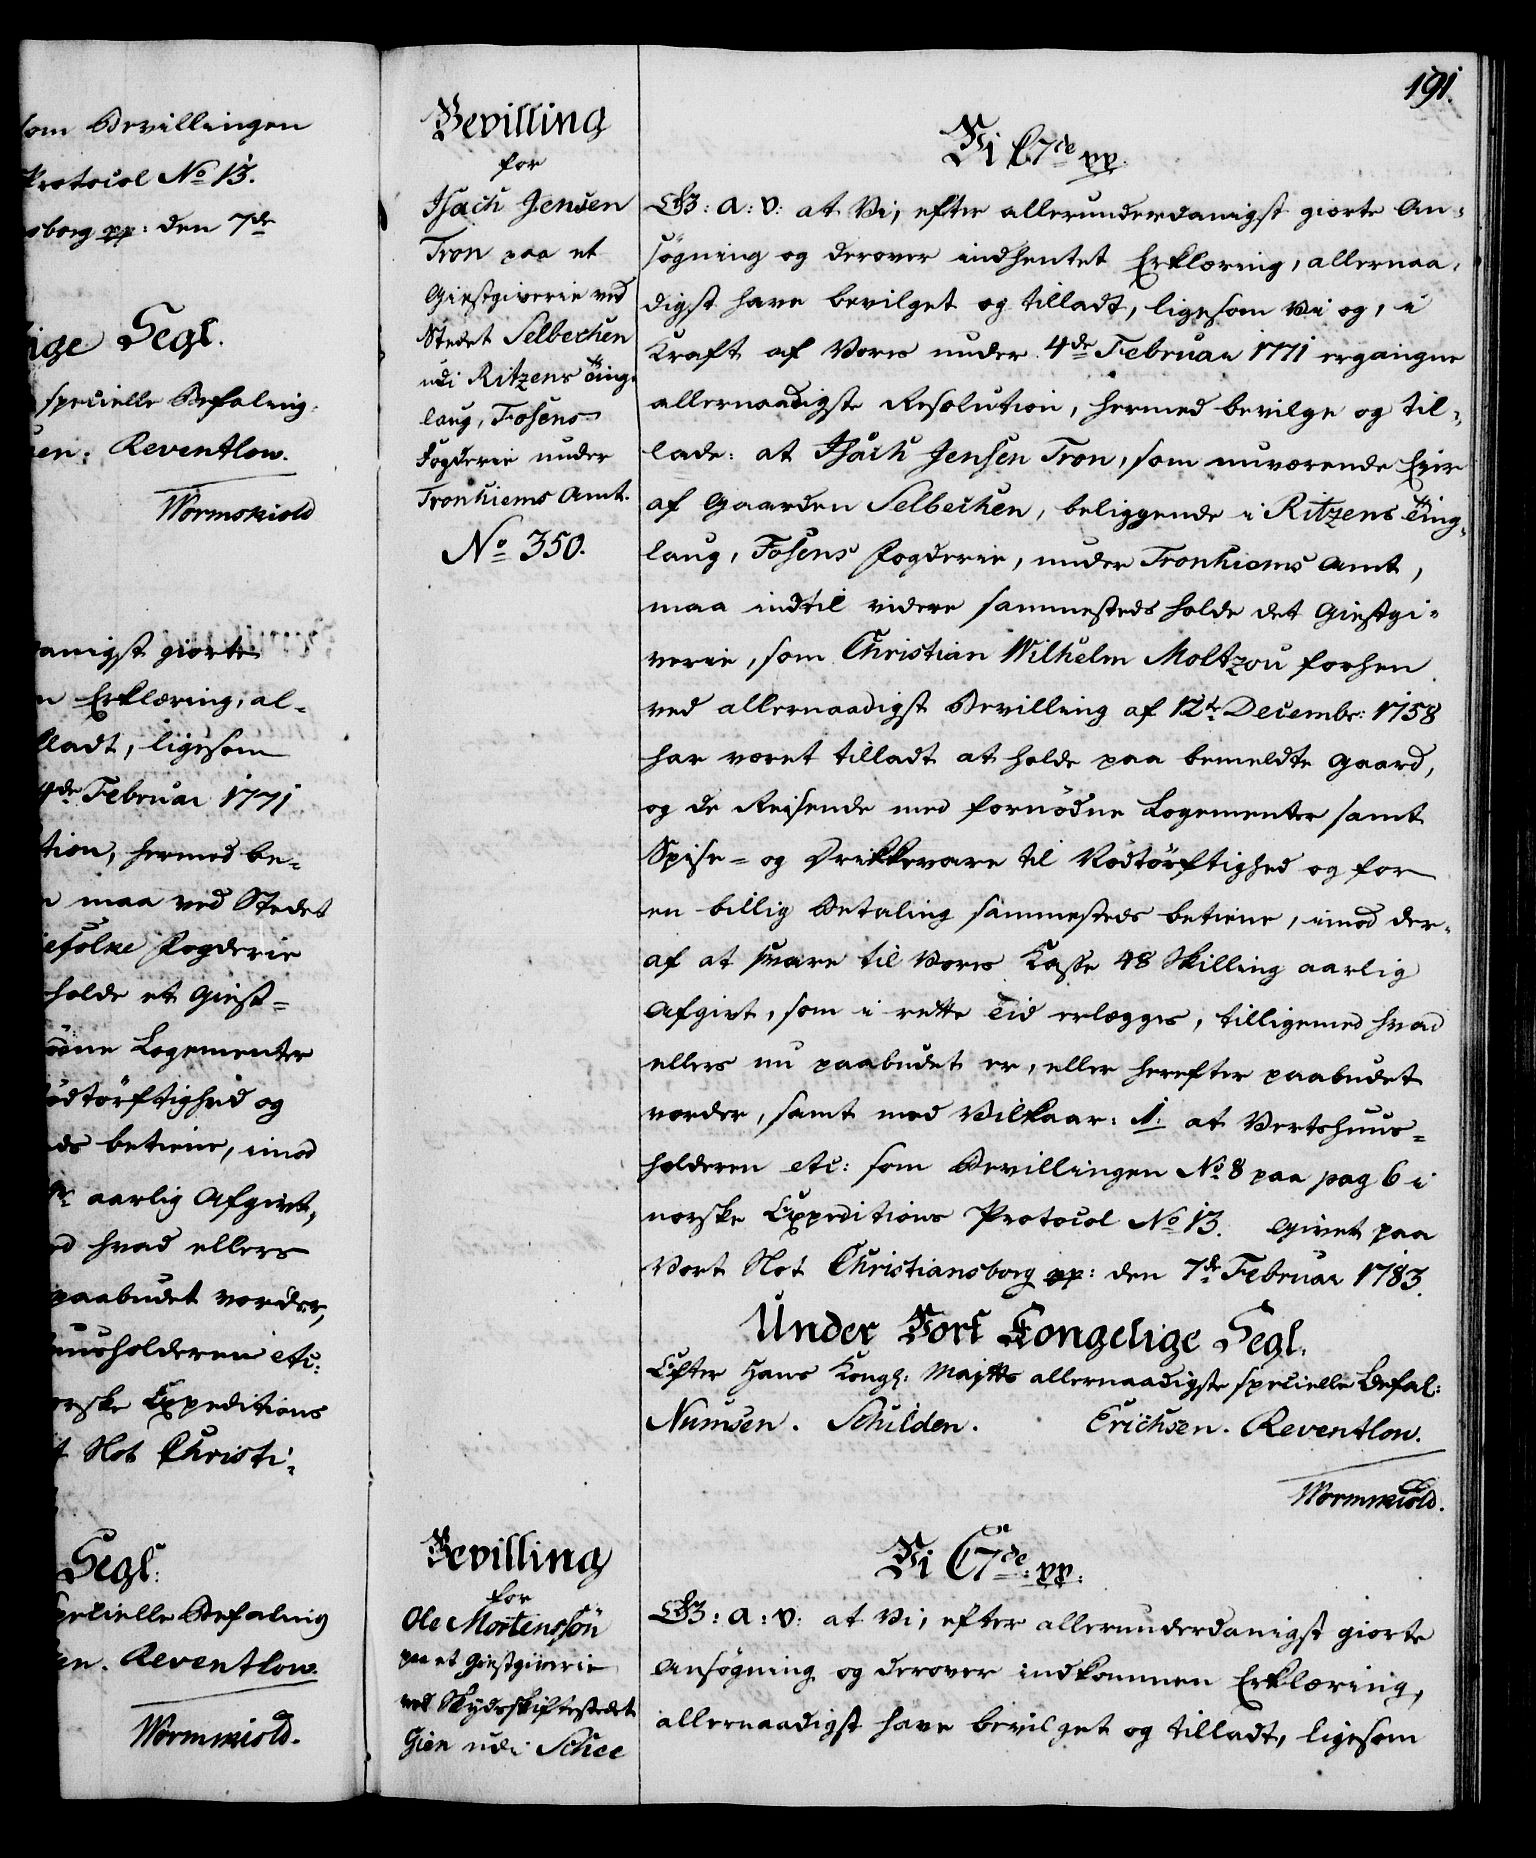 som Bevillingen
Protocol No 13.
sborg pp: den 7de
lige Segl.
specielle Befaling.
sen. Reventlow.
Wormskiold
danigst giorte
n Erklæring, al-
lladt, ligesom
4de Februar 1771
tion, hermed be-
n maa ved Stedet
efolne Fogderie
holde et Giest-
ödne Logementer
ödtörftighed og
ds betiene, imod
aarlig Afgivt,
ed hvad ellers
paabudet vorder,
huusholderen etc:
orske Expeditions
t Slot Christi-
Segl:
specielle Befaling
sen. Reventlow.
Wormskiold.
191.
Bevilling
for
Isach Jensen
Tron paa et
Giestgiverie ved
Stedet Selbechen
udi Ritzens Ting-
laug, Fosens
Fogderie under
Tronhiems Amt.
No 350.
Vi C7de pp.
G: A: V: at Vi, efter allerunderdanigst giorte An-
søgning og derover indhentet Erklæring, allernaa-
digst have bevilget og tilladt, ligesom Vi og, i
Kraft af Vores under 4de Februar 1771 ergangne
allernaadigste Resolution, hermed bevilge og til-
lade: at Isach Jensen Tron, som nuværende Eier
af Gaarden Selbechen, beliggende i Ritzens Ting-
laug, Fosens Fogderie, under Tronhiems Amt,
maa indtil videre sammesteds holde det Giestgi-
verie, som Christian Wilhelm Moltzou forhen
ved allernaadigst Bevilling af 12te Decembr: 1758
har været tilladt at holde paa bemeldte Gaard,
og de Reisende med fornödne Logementer samt
Spise- og Drikkevare til Nödtörftighed og for
en billig Betaling sammesteds betiene, imod der-
af at svare til Vores Kasse 48 Skilling aarlig
Afgivt, som i rette Tid erlægges, tilligemed hvad
ellers nu paabudet er, eller herefter paabudet
vorder, samt med Vilkaar: 1. at Vertshuus-
holderen etc: som Bevillingen No 8 paa pag 6 i
norske Expeditions Protocol No 13. Givet paa
Vort Slot Christiansborg pp: den 7de Februar 1783.
Under Vort Kongelige Segl.
Efter Hans Kongl: Majtts allernaadigste specielle Befal:
Numsen. Schulden. Erichsen. Reventlow.
Wormskiold.
Bevilling
for
Ole Mortenssön
paa et Giestgiverie
ved Skydsskiftestedet
Gien udi Schee
Vi C7de pp:
G: A: V: at Vi, efter allerunderdanigst giorte
Ansögning og derover indkommen Erklæring,
allernaadigst have bevilget og tilladt, ligesom